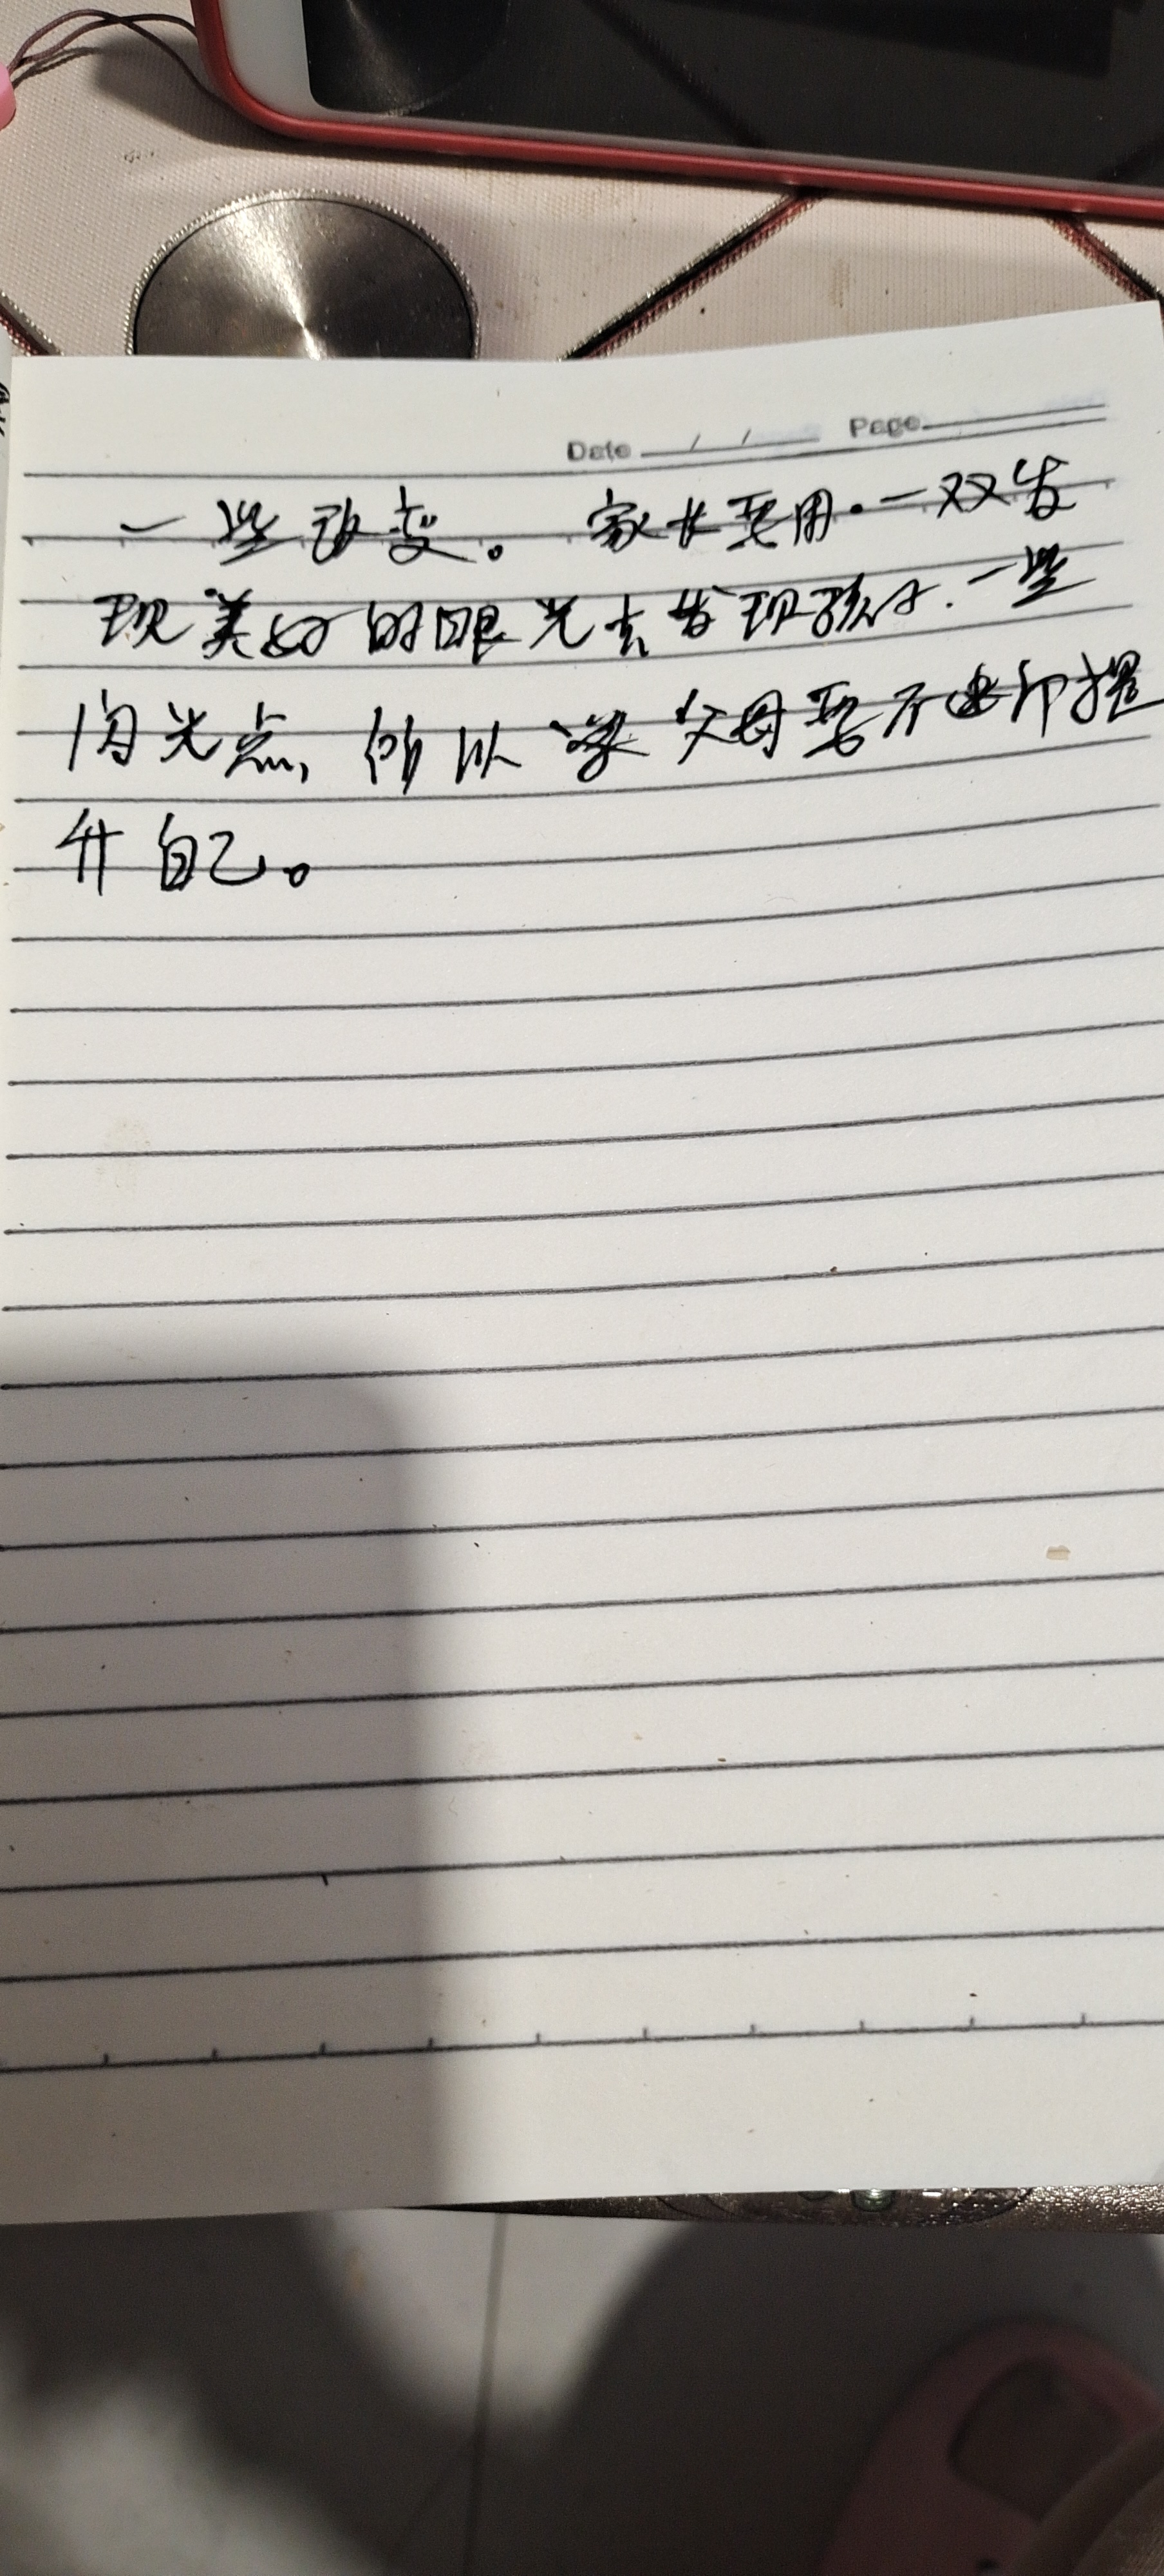 Date / / Page
一些改变。家长要用.一双发
现美好的眼光去发现孩子.一些
闪光点,所以 父母要不断提
升自己。